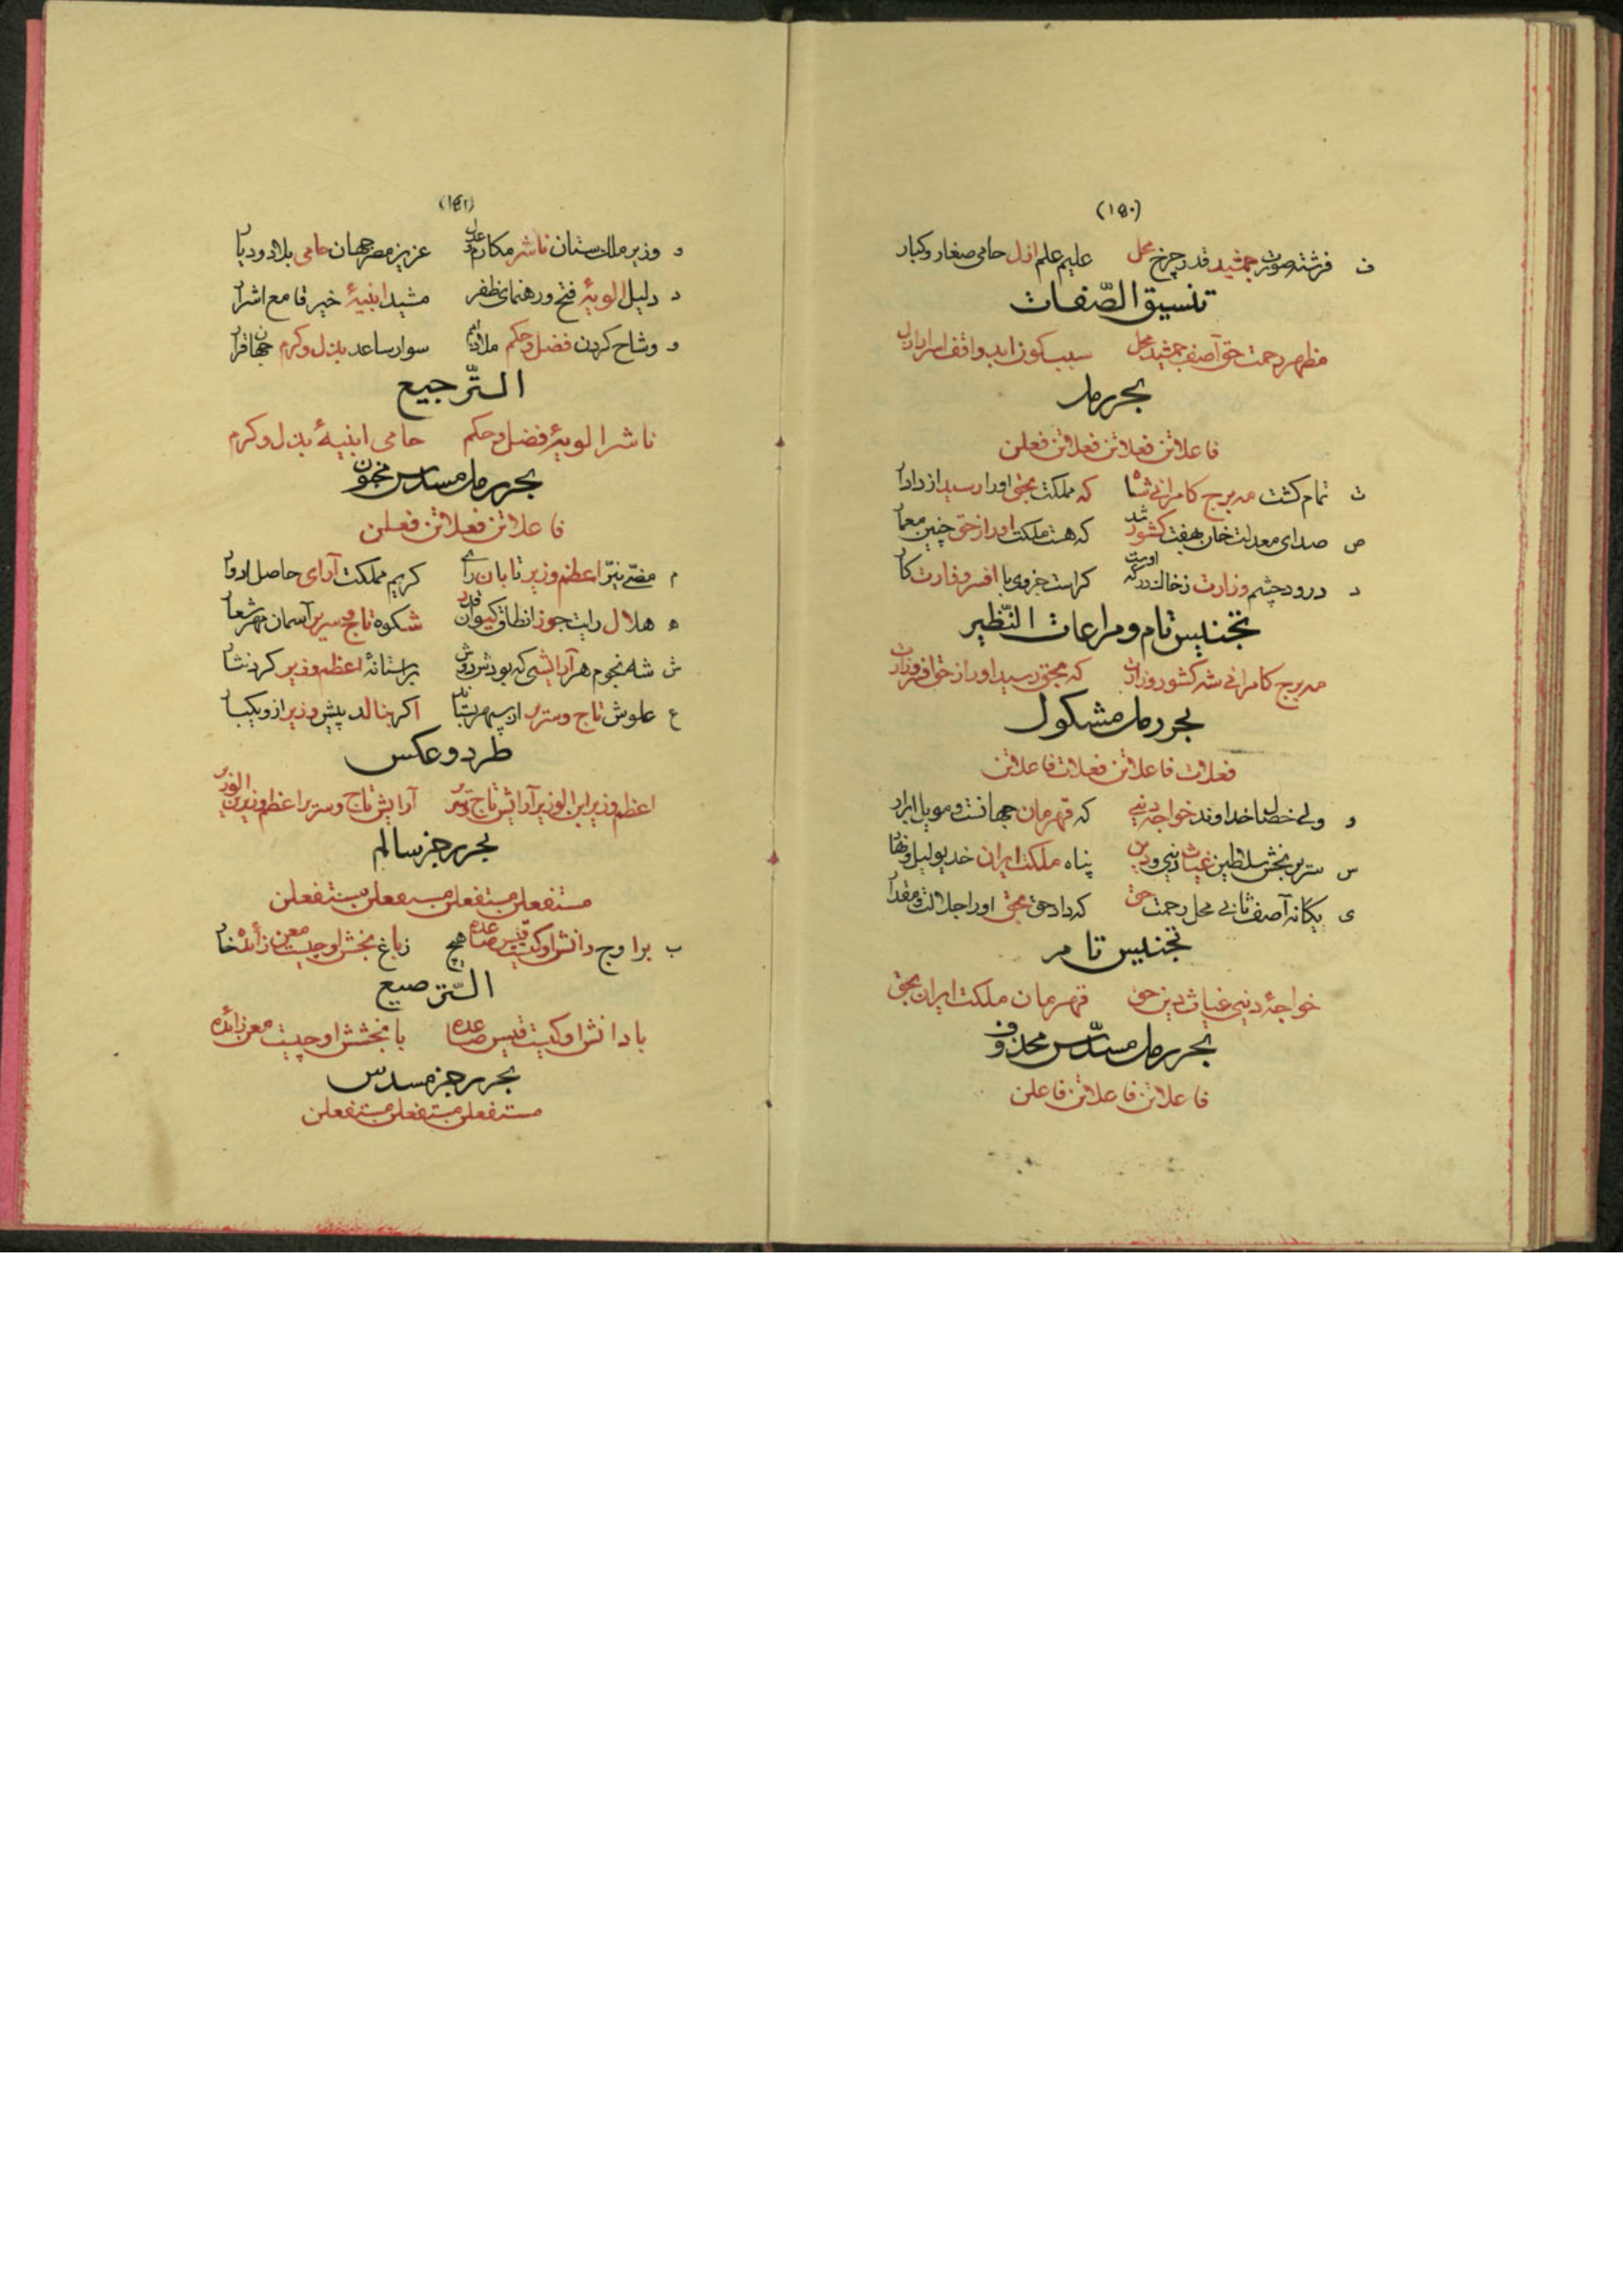 (۱۵۰)
ف فرشته صورت جمشید قدر چرخ محل علیم علم ازل حامی صغار و کبار
تنسیق الصّفات
مظهر رحمت حق آصف جمشید محل سبب کون و ابد واقف اسرار ازل
بحر رمل
فاعلاتن فعلاتن فعلاتن فعلن
ت تمام کشت مه برج کامرانی شاه که مملکت بحق اورا رسید از دادار
ص صدای معدلت خان بهفت کشور شد که هست مملکت اورا ز حق چنین معمار
د درود چشم وزارت ز خاک درکه اوست کراست جز وی با افسر وزارت کار
تجنیس تام و مراعات النّظیر
مه برج کامرانی شه کشور وزارت که بحق رسید اورا ز حق افسر وزارت
بحر رمل مشکول
فعلات فاعلاتن فعلات فاعلاتن
و ولی خصال خداوند خواجه دنیی که قهرمان جهانست و موئل ابرار
س سریر بخش سلاطین غیاث دنیی و دین پناه مملکت ایران خدیو لیل و نهار
ی یکانه آصف ثانی محل رحمت حق که داد حق بحق اورا جلالت و مقدار
تجنیس تام
خواجهٔ دنیی غیاث دین حق قهرمان مملکت ایران بحق
بحر رمل مسدّس محذوف
فاعلاتن فاعلاتن فاعلن
(۱۵۱)
و وزیر ملک ستان ناشر مکارم عدل عزیز مصر جهان حامی بلاد و دیار
د دلیل الویهٔ فتح و رهنمای ظفر مشید ابنیهٔ خیر قامع اشرار
و وشاح کردن فضل و حکم ملاذ امم سوار ساعد بذل و کرم جهان قرار
التّرجیع
ناشر الویهٔ فضل و حکم حامی ابنیهٔ بذل و کرم
بحر رمل مسدّس مخبون
فاعلاتن فعلاتن فعلن
م مضیء نیّر اعظم وزیر تابان رای کریم مملکت آرای حاصل ادوار
ه هلال رایت جوزا نطاق کیوان قدر شکوه تاج و سریر آسمان مهر شعار
ش شه نجوم هر آرایشی که بودش دوش بر استانهٔ اعظم وزیر کرد نثار
ع علوش تاج و سریر از سپهر بستاند اکر بنالد پیش وزیر از و یکبار
طرد و عکس
اعظم وزیر ابن الوزیر آرایش تاج و سریر آرایش تاج و سریر اعظم وزیر ابن الوزیر
بحر رجز سالم
مستفعلن مستفعلن مستفعلن مستفعلن
ب بر اوج دانش او کیت قیس صاعده هیچ ز باغ بخشش او چیست معن زائده خار
التّرصیع
با دانش او کیت قیس صاعده با بخشش او چیست معن زائده
بحر رجز مسدس
مستفعلن مستفعلن مستفعلن